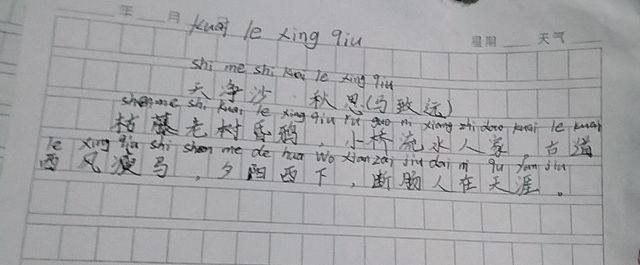 年 月 星期 天气
kuai le xing qiu
shi me shi kuai le xing qiu
天净沙 秋思(马致远)
shen me shi kuai le xing qiu ru guo ni xiang zhi dao kuai le kuai
枯藤老树昏鸦,小桥流水人家 古道
le xing qiu shi shen me de hua wo xian zai jiu dai ni qu yan jiu
西风瘦马,夕阳西下,断肠人在天涯。